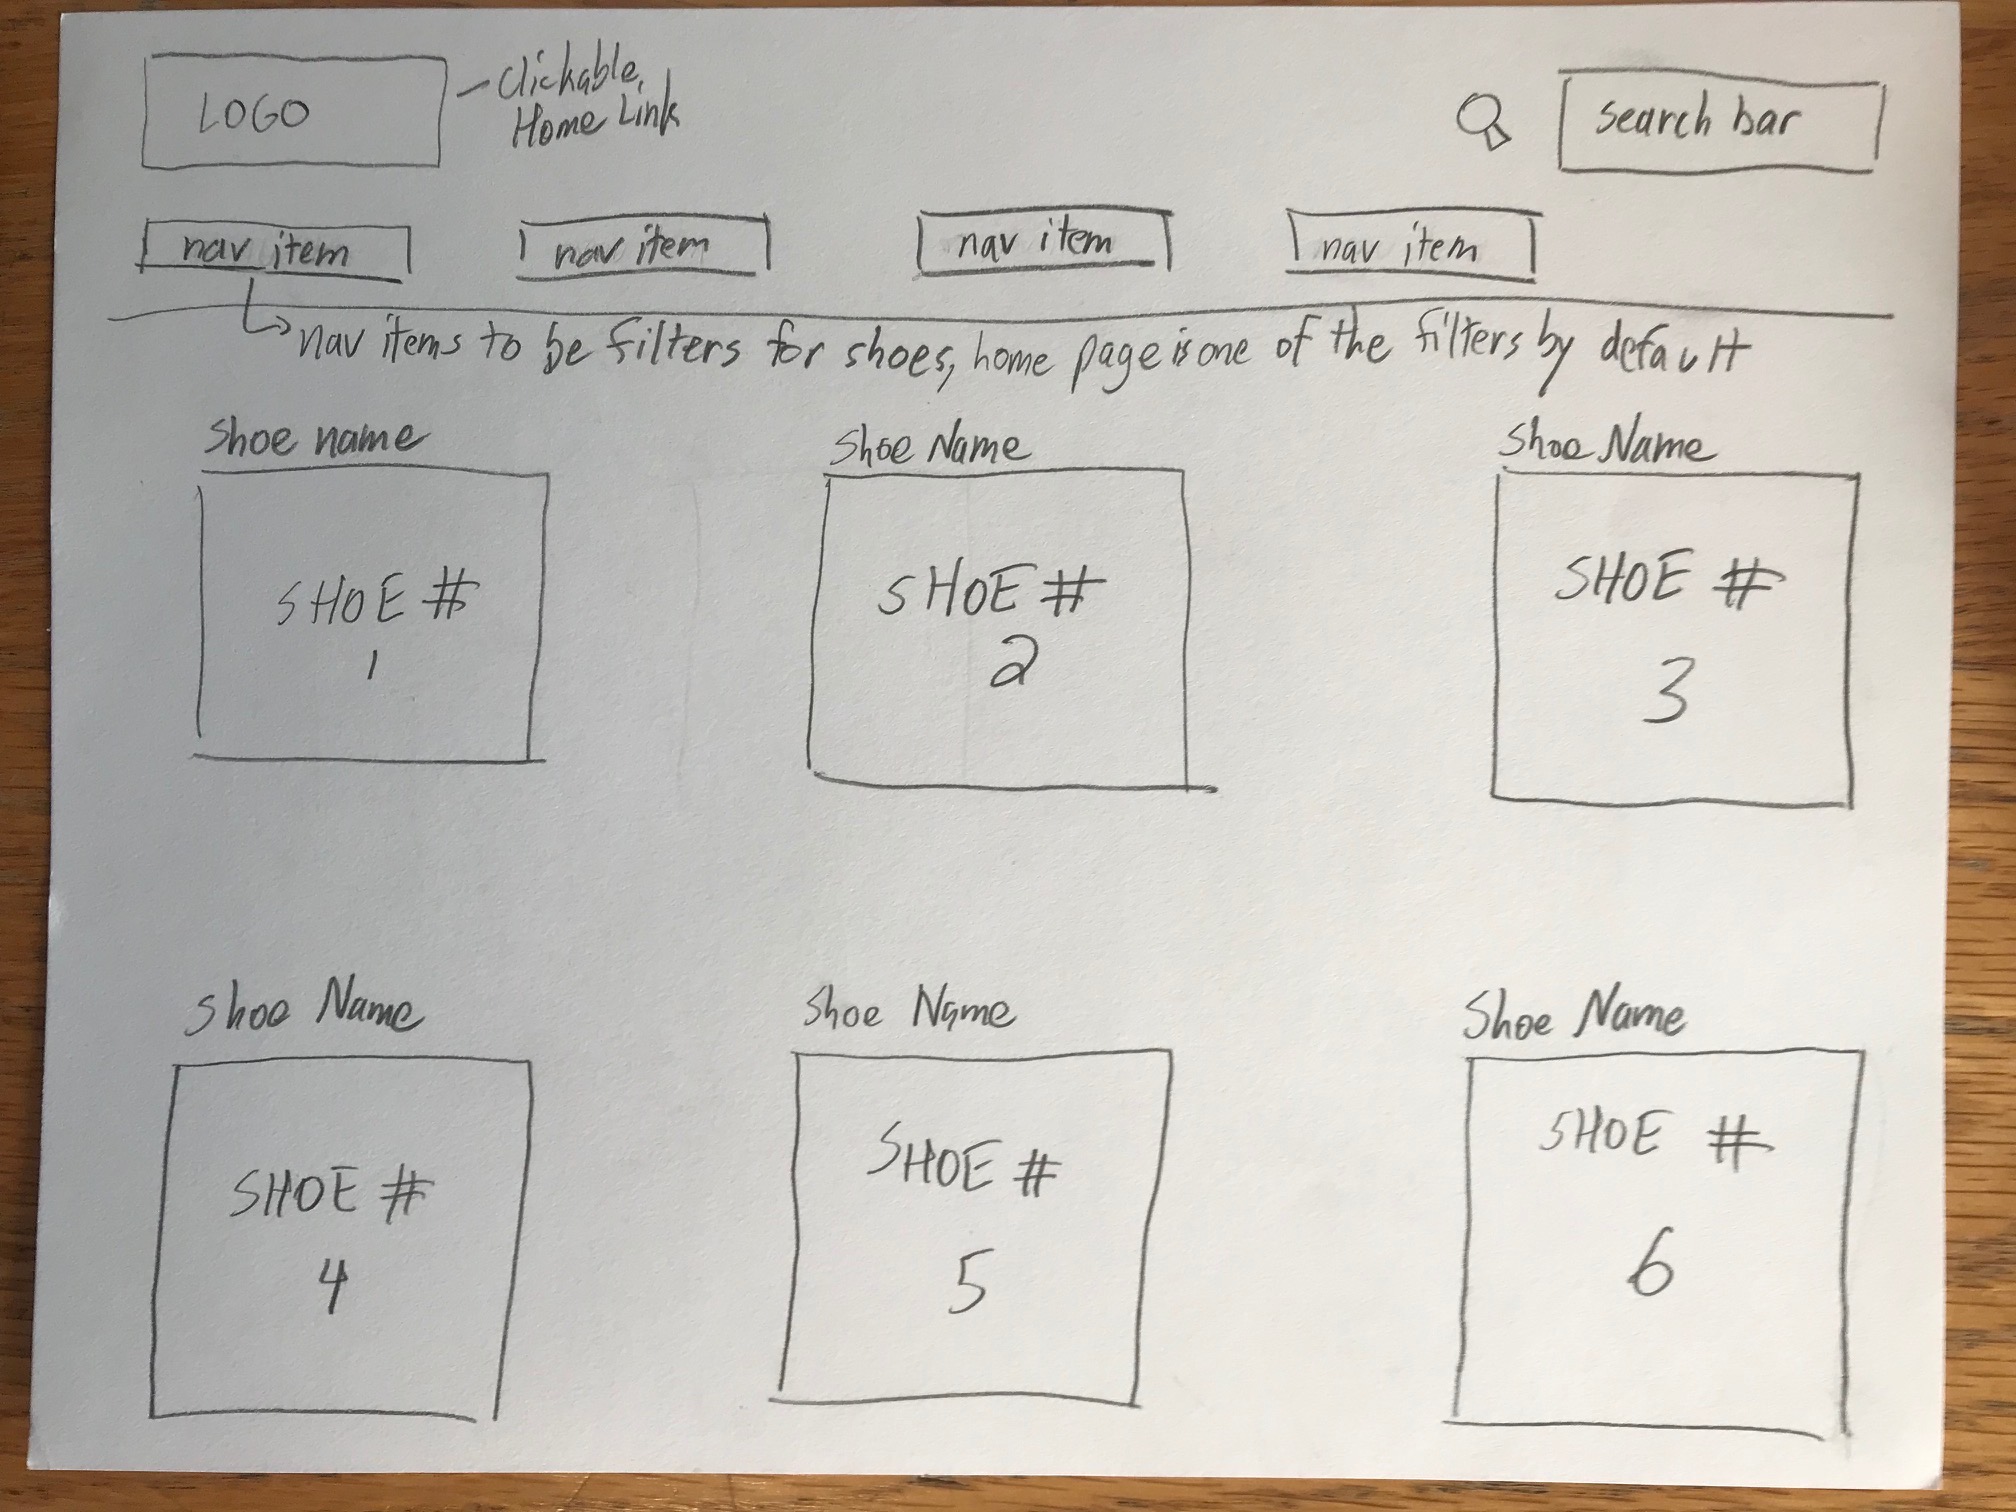 LOGO
clickable,
Home Link
search bar
nav item
nav item
nav item
nav item
nav items to be filters for shoes, home page is one of the filters by default
Shoe name
Shoe Name
Shoe Name
SHOE #
1
SHOE #
2
SHOE #
3
Shoe Name
Shoe Name
Shoe Name
SHOE #
4
SHOE #
5
SHOE #
6